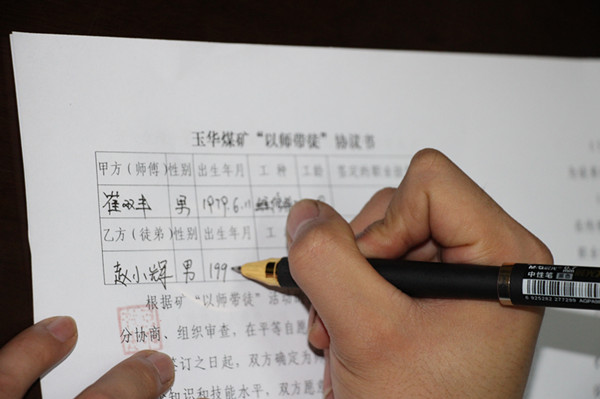 玉华煤矿“以师带徒”协议书
甲方（师傅） 性别 出生年月 工 种 工龄
崔双丰 男 1979.6.11
乙方（徒弟） 性别 出生年月 工
赵小辉 男 199
根据矿“以师带徒”活动
分协商、组织审查，在平等自愿
签订之日起，双方确定为
知识和技能水平，双方愿意
中性笔
6 925282 377289